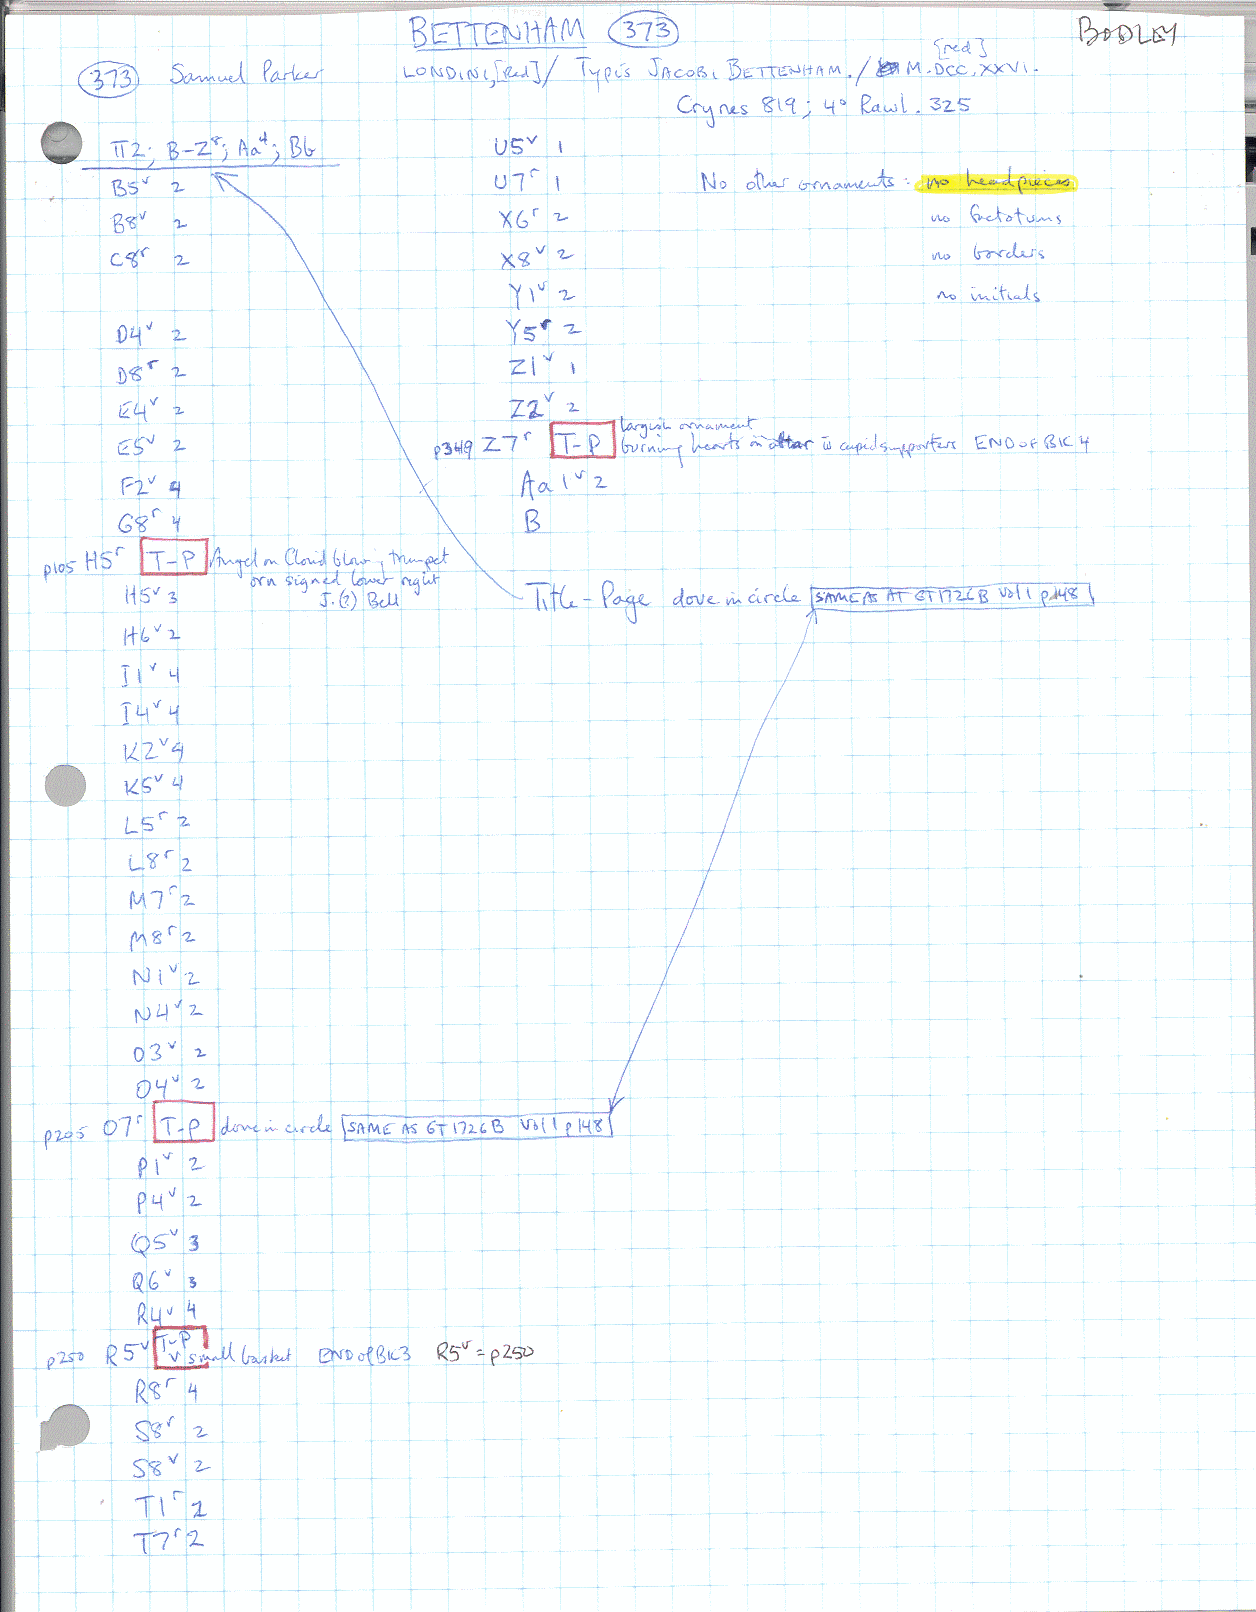 BETTENHAM 373
BODLEY
373 Samuel Parker
LONDINI, [Red] / TYPIS JACOBI BETTENHAM. / M.DCC.XXVI.
[red]
Crynes 819; 4° Rawl. 325
π2; B-Z⁸; Aa⁴; Bb
B5ᵛ 2
B8ᵛ 2
C8ʳ 2
D4ᵛ 2
D8ʳ 2
E4ᵛ 2
E5ᵛ 2
F2ᵛ 4
G8ʳ 4
p105 H5ʳ T-P Angel on Cloud blowing trumpet
orn signed lower right
J.(?) Bell
H5ᵛ 3
H6ᵛ 2
I1ᵛ 4
I4ᵛ 4
K2ᵛ 4
K5ᵛ 4
L5ʳ 2
L8ʳ 2
M7ʳ 2
M8ʳ 2
N1ᵛ 2
N4ᵛ 2
O3ᵛ 2
O4ᵛ 2
p205 O7ʳ T-P dove in circle SAME AS GT 1726B Vol 1 p148
P1ᵛ 2
P4ᵛ 2
Q5ᵛ 3
Q6ᵛ 3
R4ᵛ 4
p250 R5ᵛ T-P v small basket END of BK3 R5ᵛ = p250
R8ʳ 4
S8ʳ 2
S8ᵛ 2
T1ʳ 2
T7ʳ 2
U5ᵛ 1
U7ʳ 1
X6ʳ 2
X8ᵛ 2
Y1ᵛ 2
Y5ʳ 2
Z1ᵛ 1
Z2ᵛ 2
largish ornament
p349 Z7ʳ T-P burning hearts on altar w cupid supporters END OF BK 4
Aa1ᵛ 2
B
Title-Page dove in circle SAME AS AT GT 1726B Vol 1 p148
No other ornaments: no headpieces
no factotums
no borders
no initials